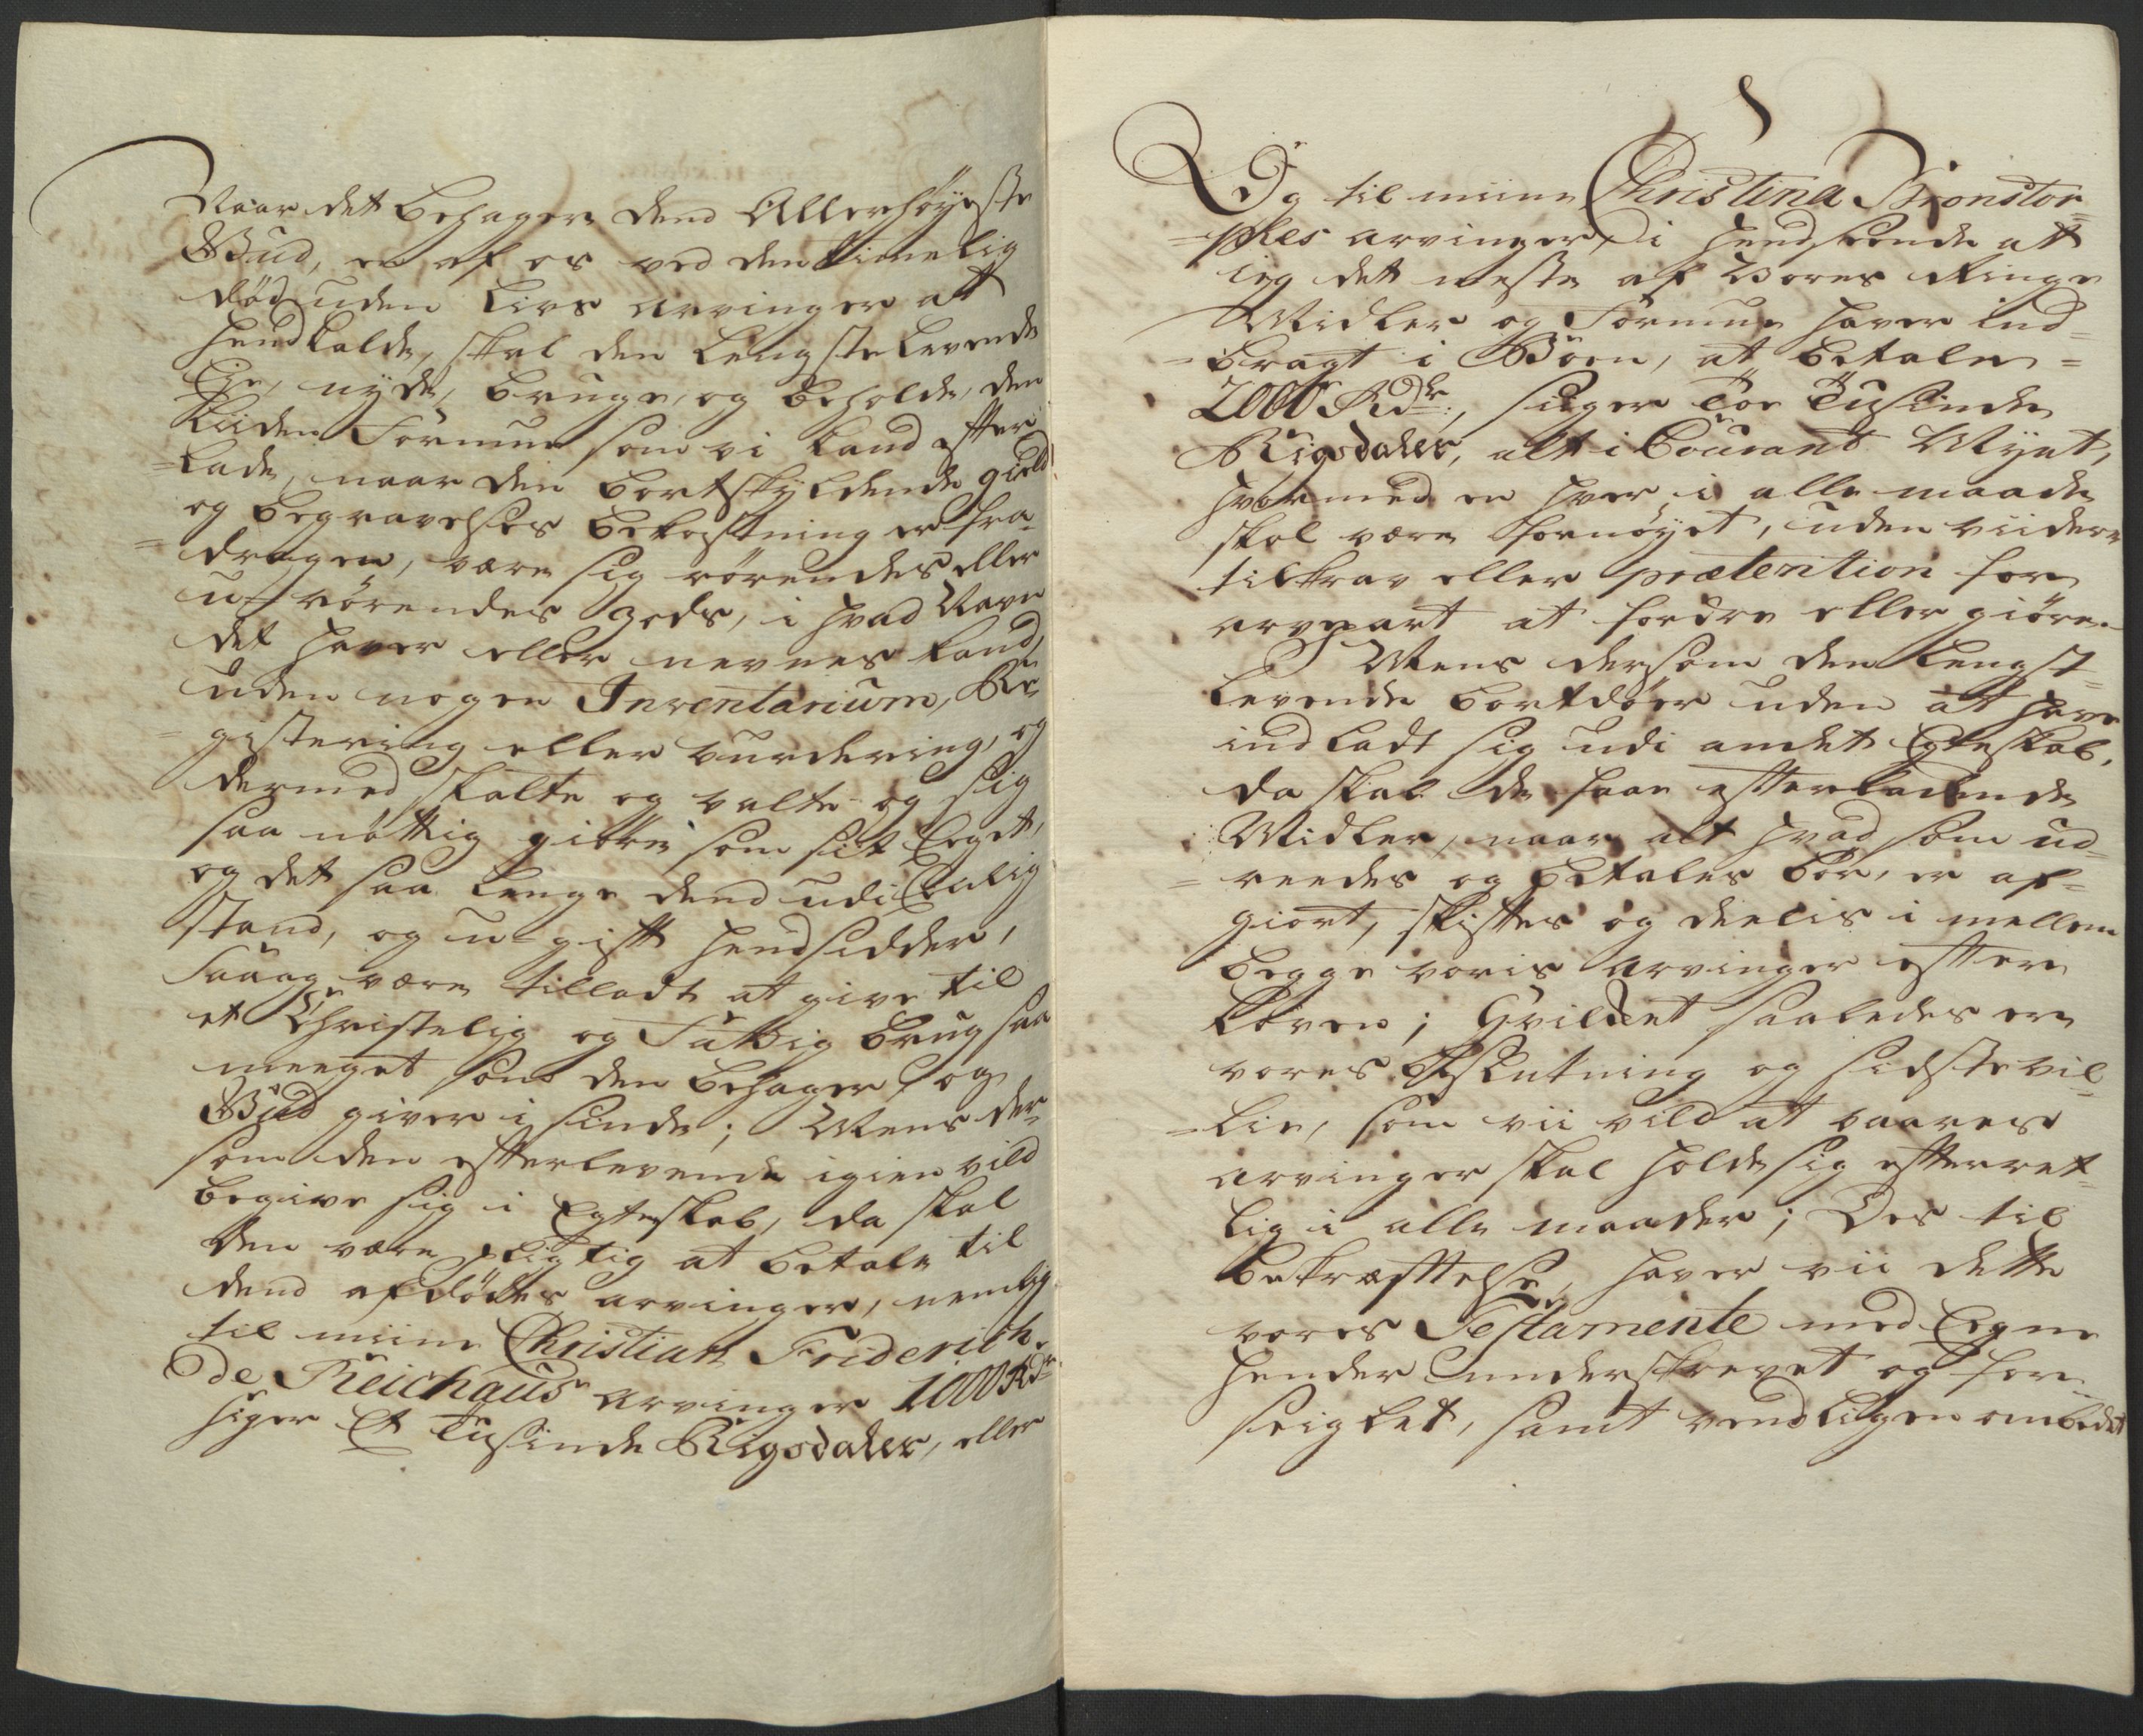 Naar det behager dend Allerhöyeste
Gud, en af os ved den timelig
död uden livs arvinger at
hendkalde, skal den lengste levende
Eje, nyde, bruge, og beholde, den
liiden Formue som vi kand efter
=lade, naar den bortskyldende gield
og begravelses bekostning er fra=
=dragen, være sig rörendes eller
u-rörendes gods, i hvad Navn
det haver eller nevnes kand,
uden nogen Inventarium, Re=
=gistering eller vurdering, og
dermed skalte og valte og sig
saa nöttig giöre som sit Eget,
og det saa lenge dend udi Enlig
stand, og u-gift hendsidder,
være tilladt at give til
et Christelig og Gudelig brug saa
meeget som den behager, og
Gud giver i sinde; Mens der=
som den efterlevende igien vild
begive sig i Egteskab, da skal
den være pligtig at betale til
dend afdödes arvinger, nemlig
til miine Christian Friderich
de Reichaus arvinger 1000 Rdr
siger Et Tusinde Rigsdaler, eller
Og til miine Christina Bronstor=
=phes arvinger, i hendseende at
ieg det meste af Vores Ringe
Midler og Formue haver ind=
=bragt i Boen, at betale =
2000 Rdr:, siger Toe Tusinde
Rigsdaler, alt i Courant Mynt,
hvormed en hver i alle maade
skal være fornöyet, uden viidere
tilkrav eller prætention for
arvepart at fordre eller giöre.
Mens dersom den Lengst=
levende bortdöer uden at have
indladt sig udi andet Egteskab,
da skal de saa efterladende
Midler, naar alt hvad som ud=
=reedes og betales bör, er af=
giort, skiftes og deelis i mellem
begge voris arvinger efter
Loven; Hvilcket saaledes er
vores Beslutning og sidste vil=
=lie, som vii vild at vaares
arvinger skal holde sig efterret=
lig i alle maader; Des til
bekræftelse, haver vii dette
vores Testamente med Egne
hender underskrevet og for=
seiglet, samt vendligen ombedet